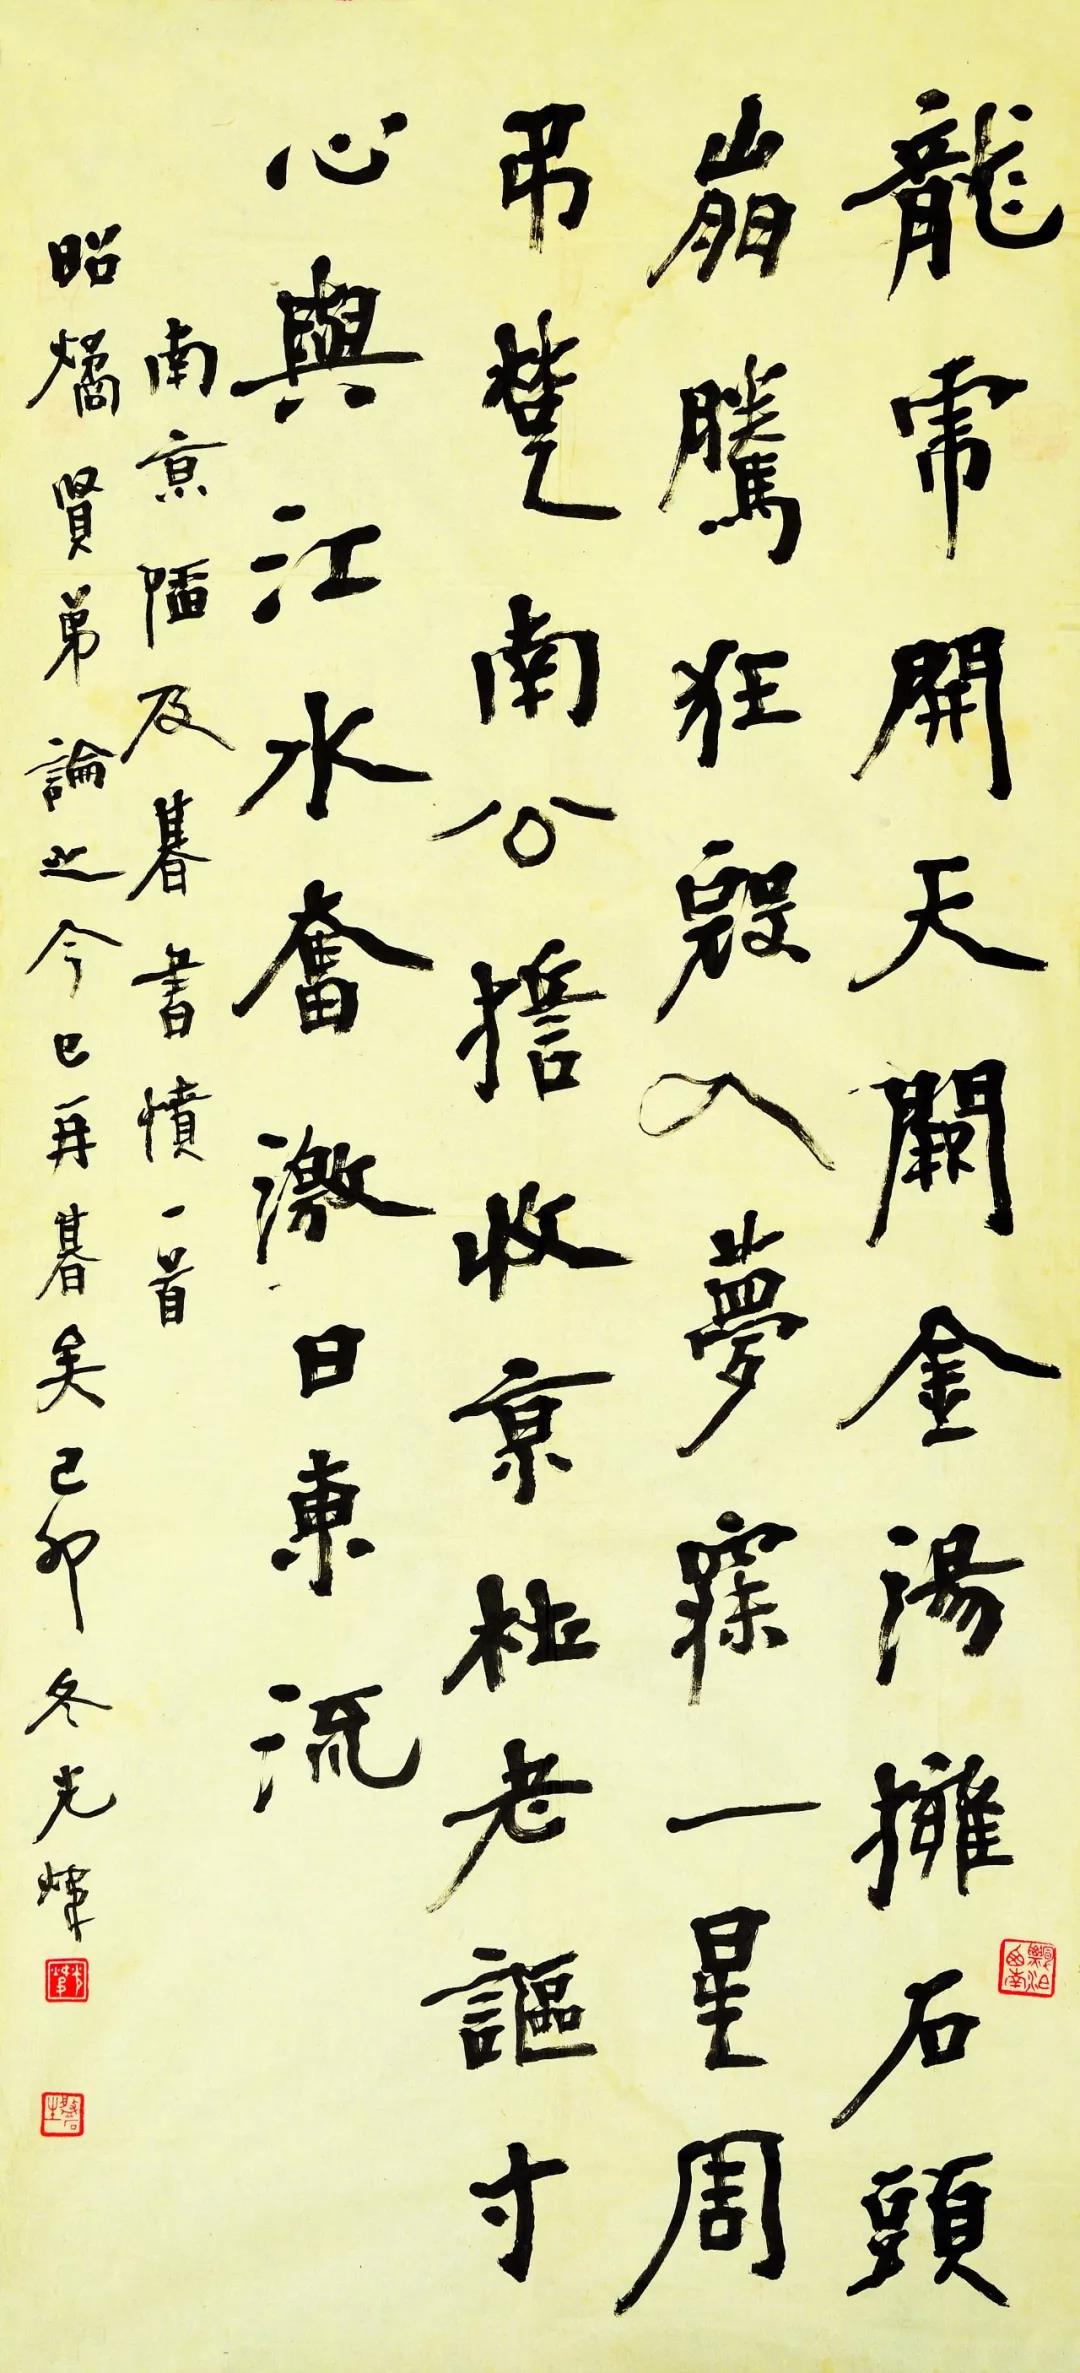 龍虎開天闕金湯擁石頭
崩騰狂寇入夢寐一星周
弔楚南公誓收京杜老謳寸
心與江水奮激日東流
南京陷及朞書憤一首
昭燏賢弟論之今已再朞矣己卯冬光煒
飄泊西南